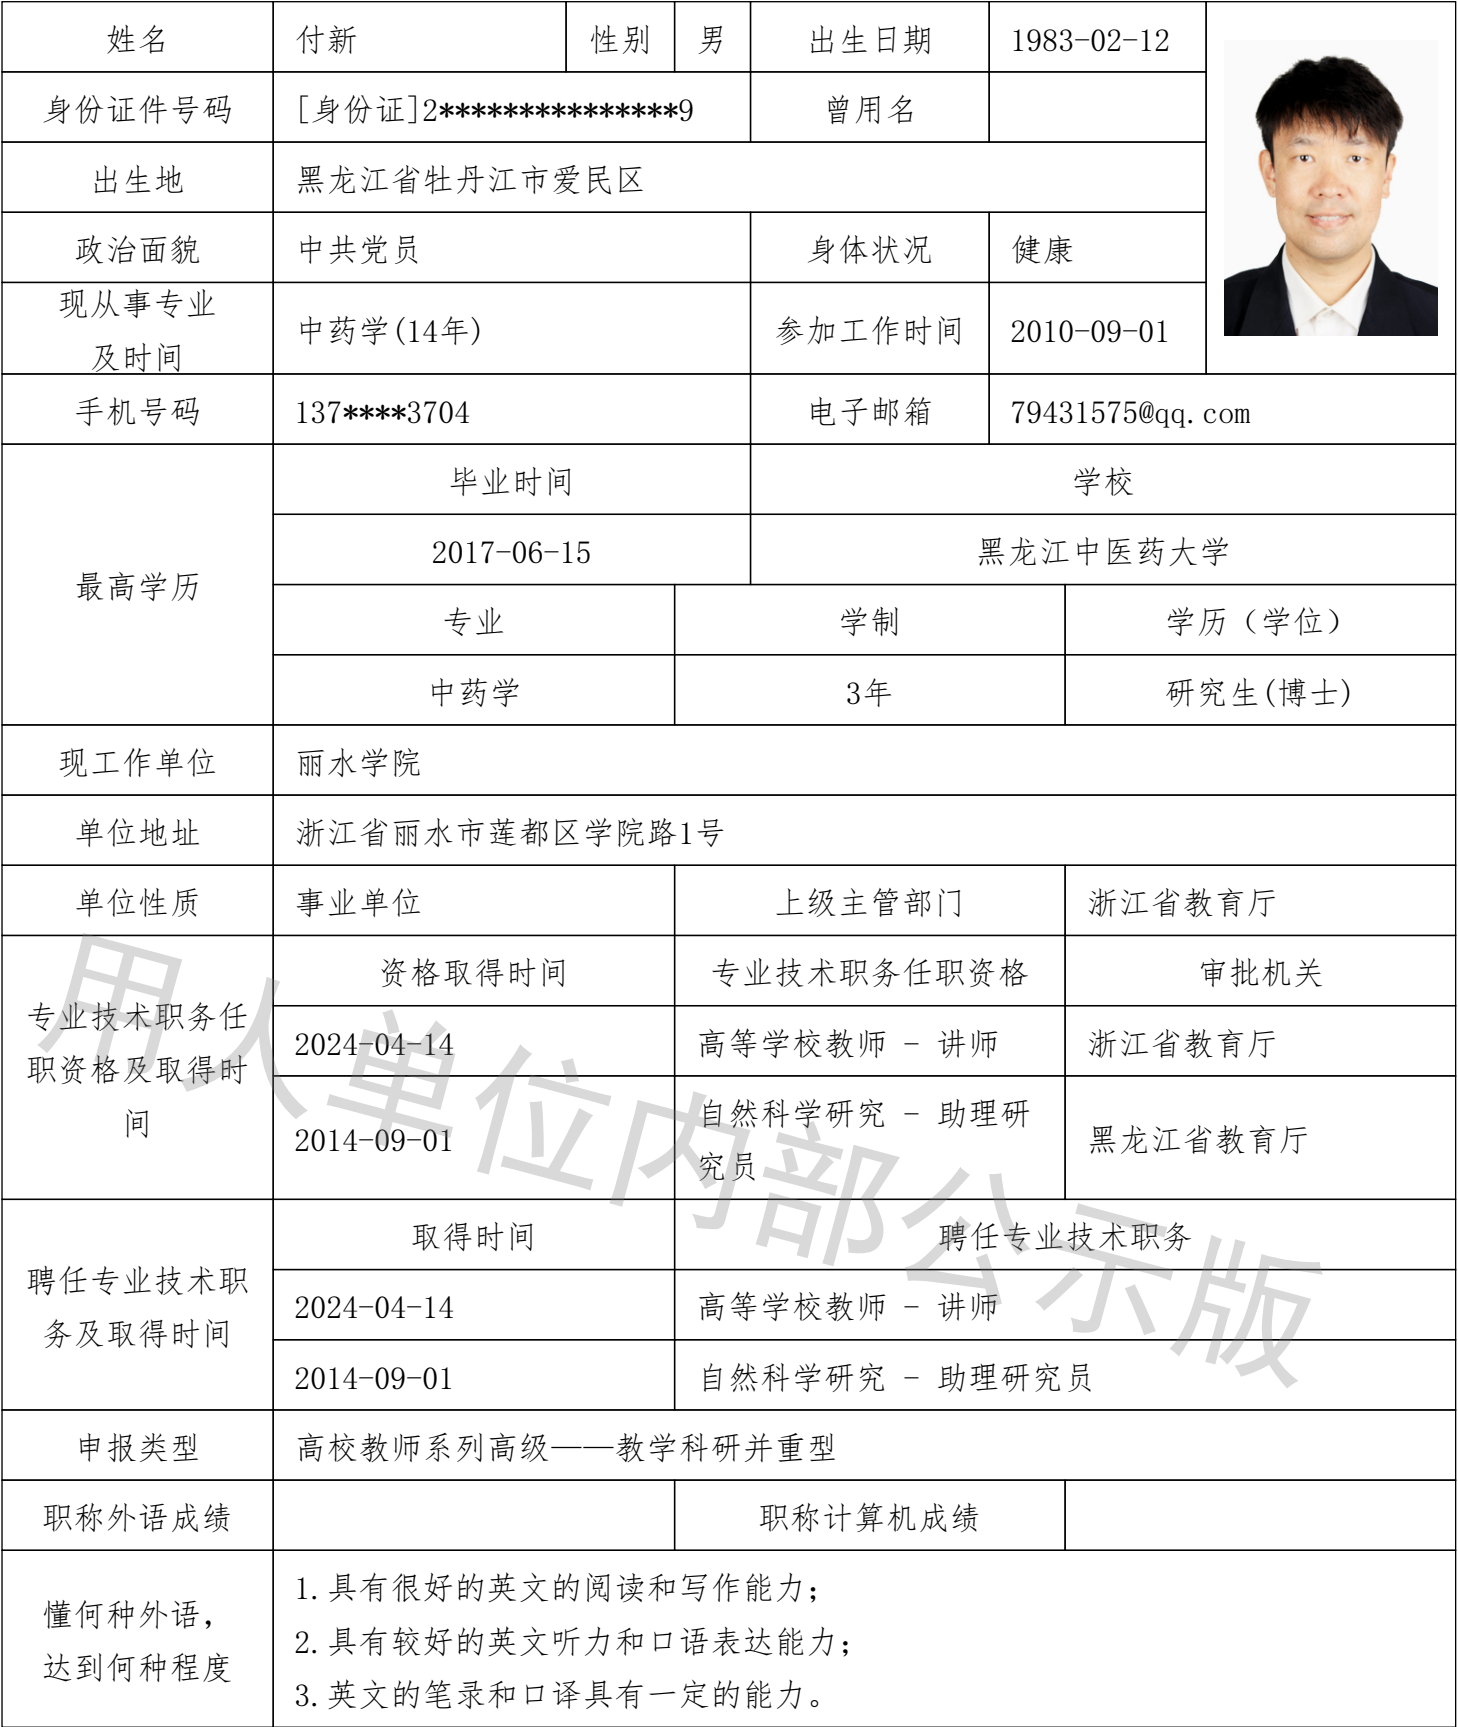 姓名 付新 性别 男 出生日期 1983-02-12
身份证件号码 [身份证]2***************9 曾用名
出生地 黑龙江省牡丹江市爱民区
政治面貌 中共党员 身体状况 健康
现从事专业
及时间 中药学(14年) 参加工作时间 2010-09-01
手机号码 137****3704 电子邮箱 79431575@qq.com
最高学历
毕业时间 学校
2017-06-15 黑龙江中医药大学
专业 学制 学历（学位）
中药学 3年 研究生(博士)
现工作单位 丽水学院
单位地址 浙江省丽水市莲都区学院路1号
单位性质 事业单位 上级主管部门 浙江省教育厅
专业技术职务任
职资格及取得时
间
资格取得时间 专业技术职务任职资格 审批机关
2024-04-14 高等学校教师 - 讲师 浙江省教育厅
2014-09-01 自然科学研究 - 助理研
究员 黑龙江省教育厅
聘任专业技术职
务及取得时间
取得时间 聘任专业技术职务
2024-04-14 高等学校教师 - 讲师
2014-09-01 自然科学研究 - 助理研究员
申报类型 高校教师系列高级——教学科研并重型
职称外语成绩 职称计算机成绩
懂何种外语，
达到何种程度
1.具有很好的英文的阅读和写作能力；
2.具有较好的英文听力和口语表达能力；
3.英文的笔录和口译具有一定的能力。
用人单位内部公示版